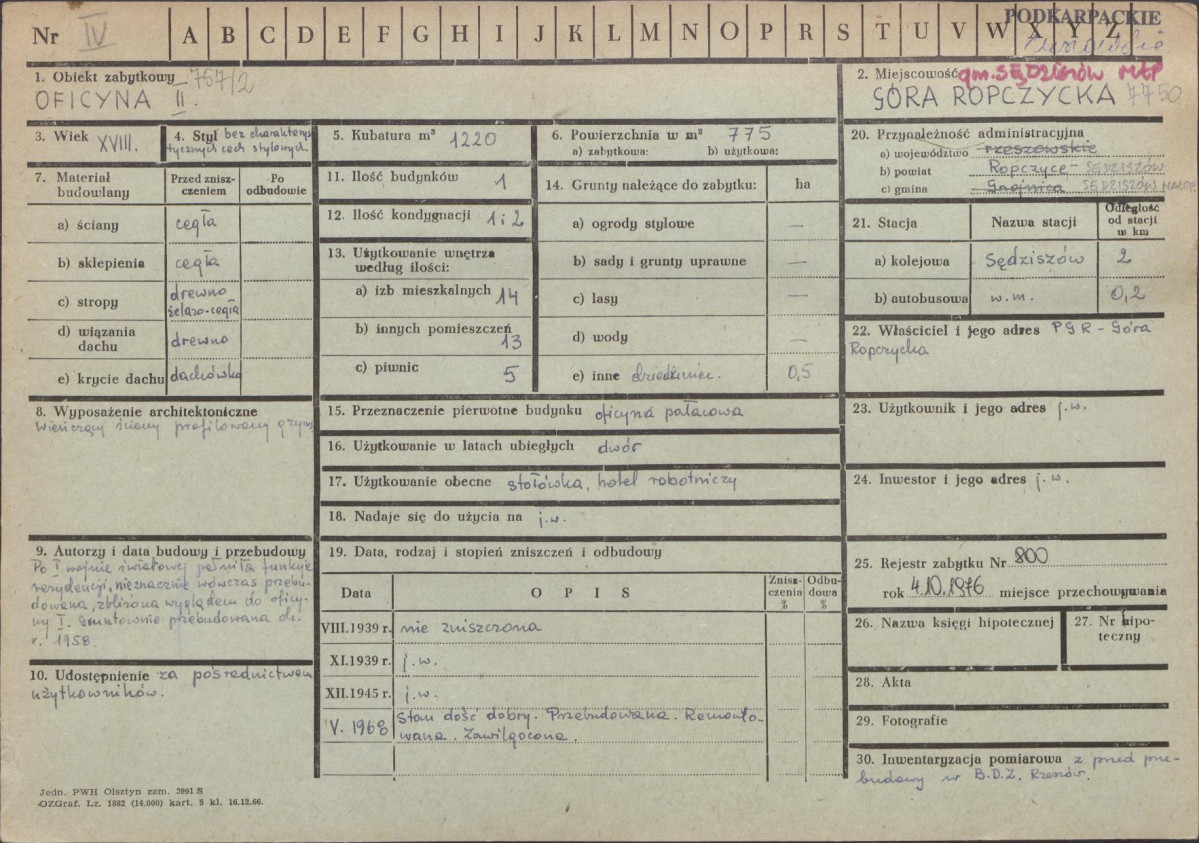 Nr IV A B C D E F G H I J K L M N O P R S T U V W X Y Z
PODKARPACKIE
1. Obiekt zabytkowy 757/2
OFICYNA II.
2. Miejscowość gm. SĘDZISZÓW MŁP
GÓRA ROPCZYCKA 7750
3. Wiek XVIII.
4. Styl bez charakterys
tycznych cech stylowych.
5. Kubatura m³ 1220
6. Powierzchnia w m² 775
a) zabytkowa: b) użytkowa:
7. Materiał budowlany
Przed znisz-
czeniem
Po
odbudowie
a) ściany cegła
b) sklepienia cegła
c) stropy drewno
żelazo-cegła
d) wiązania
dachu drewno
e) krycie dachu dachówka
8. Wyposażenie architektoniczne
Wieńczący ściany profilowany gzyms
9. Autorzy i data budowy i przebudowy
Po I wojnie światowej pełniła funkcję
rezydencji, nieznacznie wówczas przebu-
dowana, zbliżona wyglądem do oficy-
ny I. Gruntownie przebudowana ok.
r. 1958.
10. Udostępnienie za pośrednictwem
użytkowników.
11. Ilość budynków 1
12. Ilość kondygnacji 1 i 2
13. Użytkowanie wnętrza
według ilości:
a) izb mieszkalnych 14
b) innych pomieszczeń
13
c) piwnic 5
14. Grunty należące do zabytku: ha
a) ogrody stylowe —
b) sady i grunty uprawne —
c) lasy —
d) wody —
e) inne dziedziniec. 0,5
15. Przeznaczenie pierwotne budynku oficyna pałacowa
16. Użytkowanie w latach ubiegłych dwór
17. Użytkowanie obecne stołówka, hotel robotniczy
18. Nadaje się do użycia na j.w.
19. Data, rodzaj i stopień zniszczeń i odbudowy
Data O P I S
Znisz-
czenia
%
Odbu-
dowa
%
VIII.1939 r. nie zniszczona
XI.1939 r. j.w.
XII.1945 r. j.w.
V. 1968 Stan dość dobry. Przebudowana. Remonto-
wana. Zawilgocona.
20. Przynależność administracyjna
a) województwo rzeszowskie
b) powiat Ropczyce - SĘDZISZÓW
c) gmina Gnojnica SĘDZISZÓW MAŁOP.
21. Stacja Nazwa stacji
Odległość
od stacji
w km
a) kolejowa Sędziszów 2
b) autobusowa w.m. 0,2
22. Właściciel i jego adres PGR - Góra
Ropczycka
23. Użytkownik i jego adres j.w.
24. Inwestor i jego adres j.w.
25. Rejestr zabytku Nr 800
rok 4.10.1976 miejsce przechowywania
26. Nazwa księgi hipotecznej
27. Nr hipo-
teczny
28. Akta
29. Fotografie
30. Inwentaryzacja pomiarowa z przed prze-
budowy w B.D.Z. Rzeszów.
Jedn. PWH Olsztyn zam. 3991 S
OZGraf. Lz. 1882 (14.000) kart. 5 kl. 16.12.66.